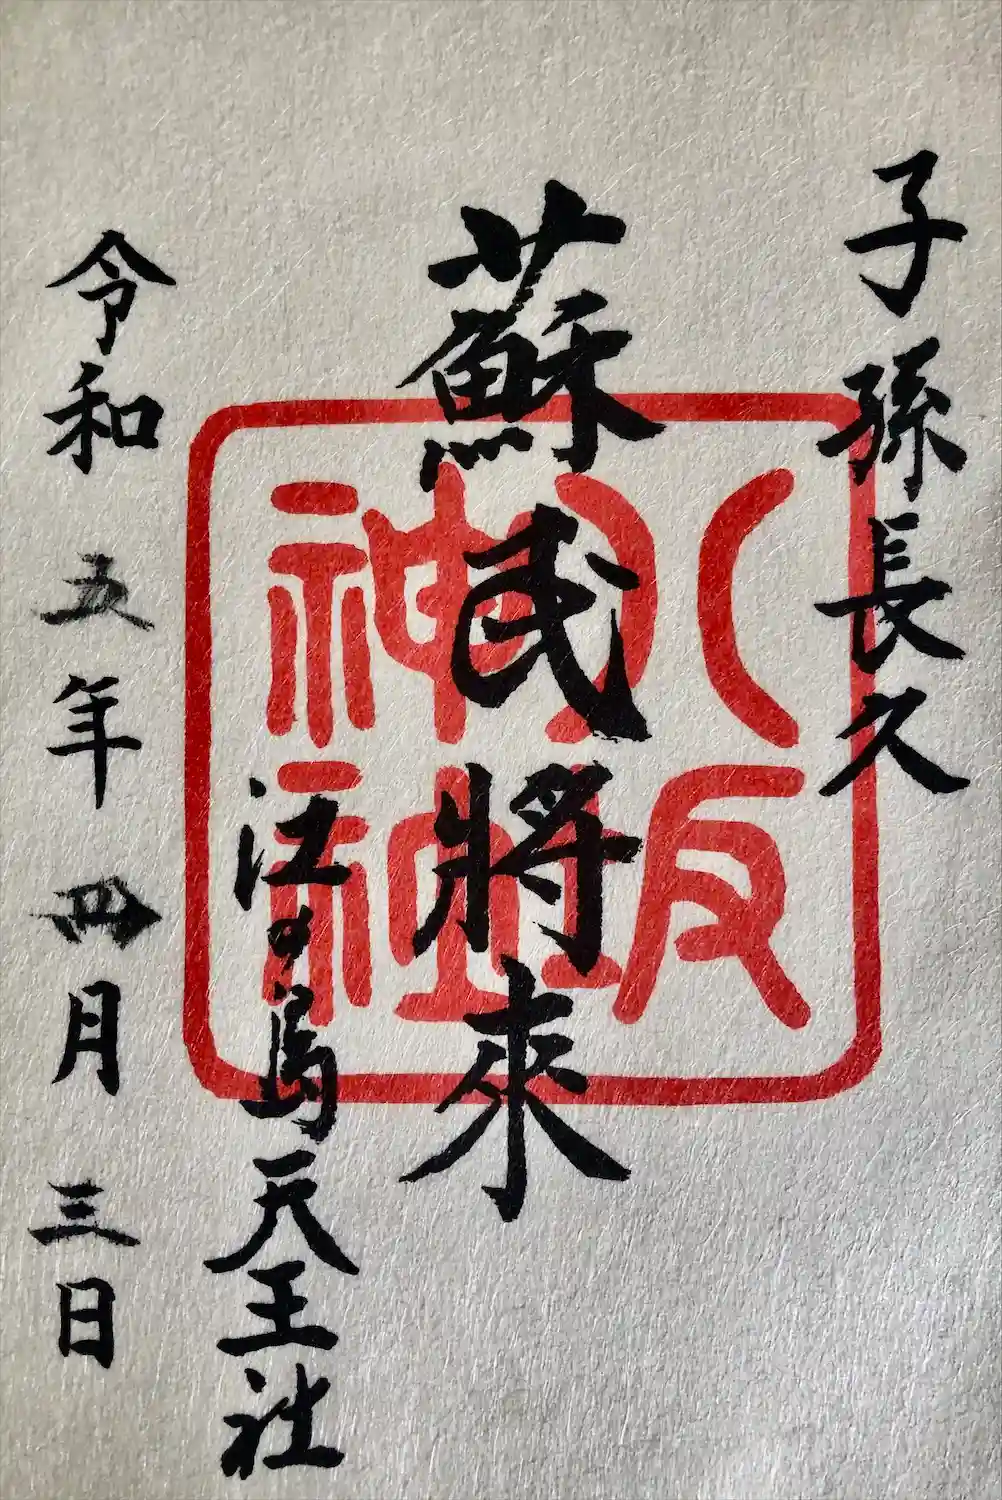 子孫長久
蘇民將來
江の島天王社
令和五年四月三日
八坂神社